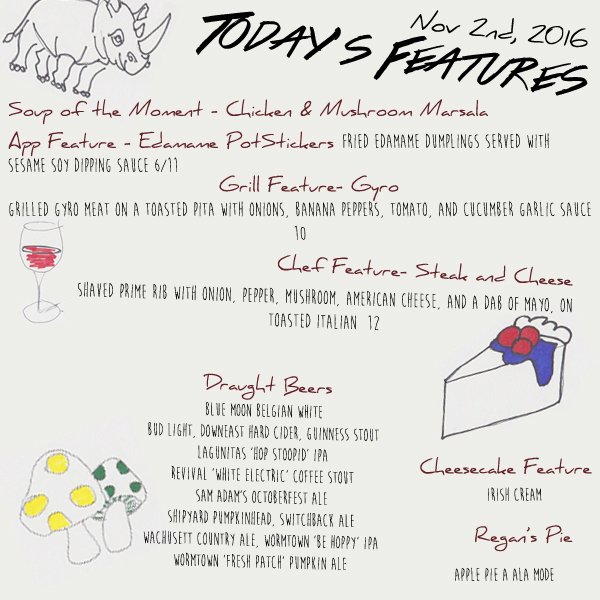 Nov 2nd, 2016
TODAY'S FEATURES
Soup of the Moment - Chicken & Mushroom Marsala
App Feature - Edamame PotStickers FRIED EDAMAME DUMPLINGS SERVED WITH
SESAME SOY DIPPING SAUCE 6/11
Grill Feature- Gyro
GRILLED GYRO MEAT ON A TOASTED PITA WITH ONIONS, BANANA PEPPERS, TOMATO, AND CUCUMBER GARLIC SAUCE
10
Chef Feature- Steak and Cheese
SHAVED PRIME RIB WITH ONION, PEPPER, MUSHROOM, AMERICAN CHEESE, AND A DAB OF MAYO, ON
TOASTED ITALIAN 12
Draught Beers
BLUE MOON BELGIAN WHITE
BUD LIGHT, DOWNEAST HARD CIDER, GUINNESS STOUT
LAGUNITAS 'HOP STOOPID' IPA
REVIVAL 'WHITE ELECTRIC' COFFEE STOUT
SAM ADAM'S OCTOBERFEST ALE
SHIPYARD PUMPKINHEAD, SWITCHBACK ALE
WACHUSETT COUNTRY ALE, WORMTOWN 'BE HOPPY' IPA
WORMTOWN 'FRESH PATCH' PUMPKIN ALE
Cheesecake Feature
IRISH CREAM
Regan's Pie
APPLE PIE A ALA MODE